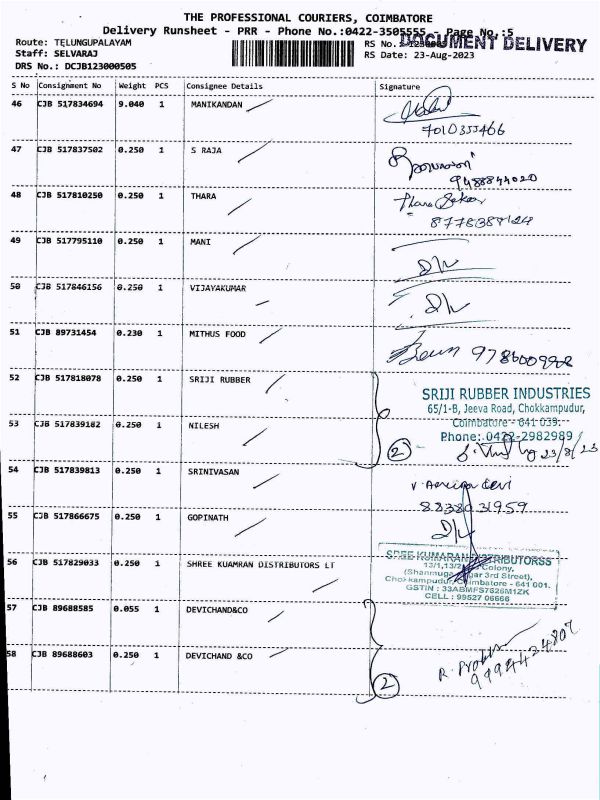 THE PROFESSIONAL COURIERS, COIMBATORE
Delivery Runsheet - PRR - Phone No.:0422-3505555 - Page No.:5
DOCUMENT DELIVERY
Route: TELUNGUPALAYAM
RS No.:
Staff: SELVARAJ
RS Date: 23-Aug-2023
DRS No.: DCJB123000505
S No Consignment No Weight PCS Consignee Details Signature
46 CJB 517834694 9.040 1 MANIKANDAN
7010355466
47 CJB 517837502 0.250 1 S RAJA
9488844020
48 CJB 517810250 0.250 1 THARA
49 CJB 517795110 0.250 1 MANI
50 CJB 517846156 0.250 1 VIJAYAKUMAR
51 CJB 89731454 0.230 1 MITHUS FOOD
52 CJB 517818078 0.250 1 SRIJI RUBBER
SRIJI RUBBER INDUSTRIES
65/1-B, Jeeva Road, Chokkampudur,
Coimbatore - 641 039.
Phone: 0422-2982989
53 CJB 517839182 0.250 1 NILESH
2 23/8/23
54 CJB 517839813 0.250 1 SRINIVASAN
8838031959
55 CJB 517866675 0.250 1 GOPINATH
56 CJB 517829033 0.250 1 SHREE KUAMRAN DISTRIBUTORS LT
SREE KUMARAN DISTRIBUTORSS
Colony,
3rd Street),
Chokkampudur, Coimbatore - 641 001.
GSTIN : 33ABMFS7626M1ZK
CELL : 99527 06666
57 CJB 89688585 0.055 1 DEVICHAND&CO
58 CJB 89688603 0.250 1 DEVICHAND &CO
2
9994424807